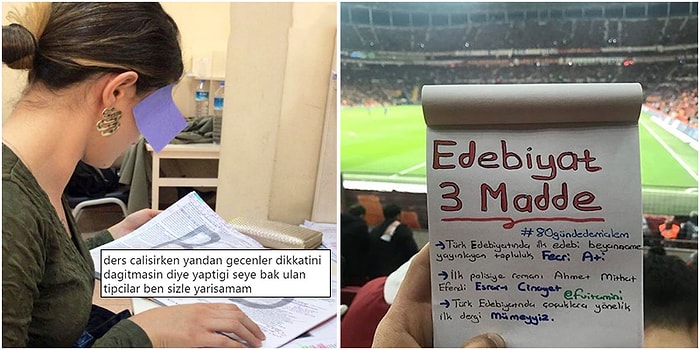 ders calisirken yandan gecenler dikkatini
dagitmasin diye yaptigi seye bak ulan
tipcilar ben sizle yarisamam
Edebiyat
3 Madde
#80gündedemialem
→Türk Edebiyatında ilk edebi beyanname
yayınlayan topluluk Fecri Ati
→ İlk polisiye romanı Ahmet Mithat
Efendi Esrar-ı Cinayet @fvitamini
→ Türk Edebiyatında çocuklara yönelik
ilk dergi Mümeyyiz.